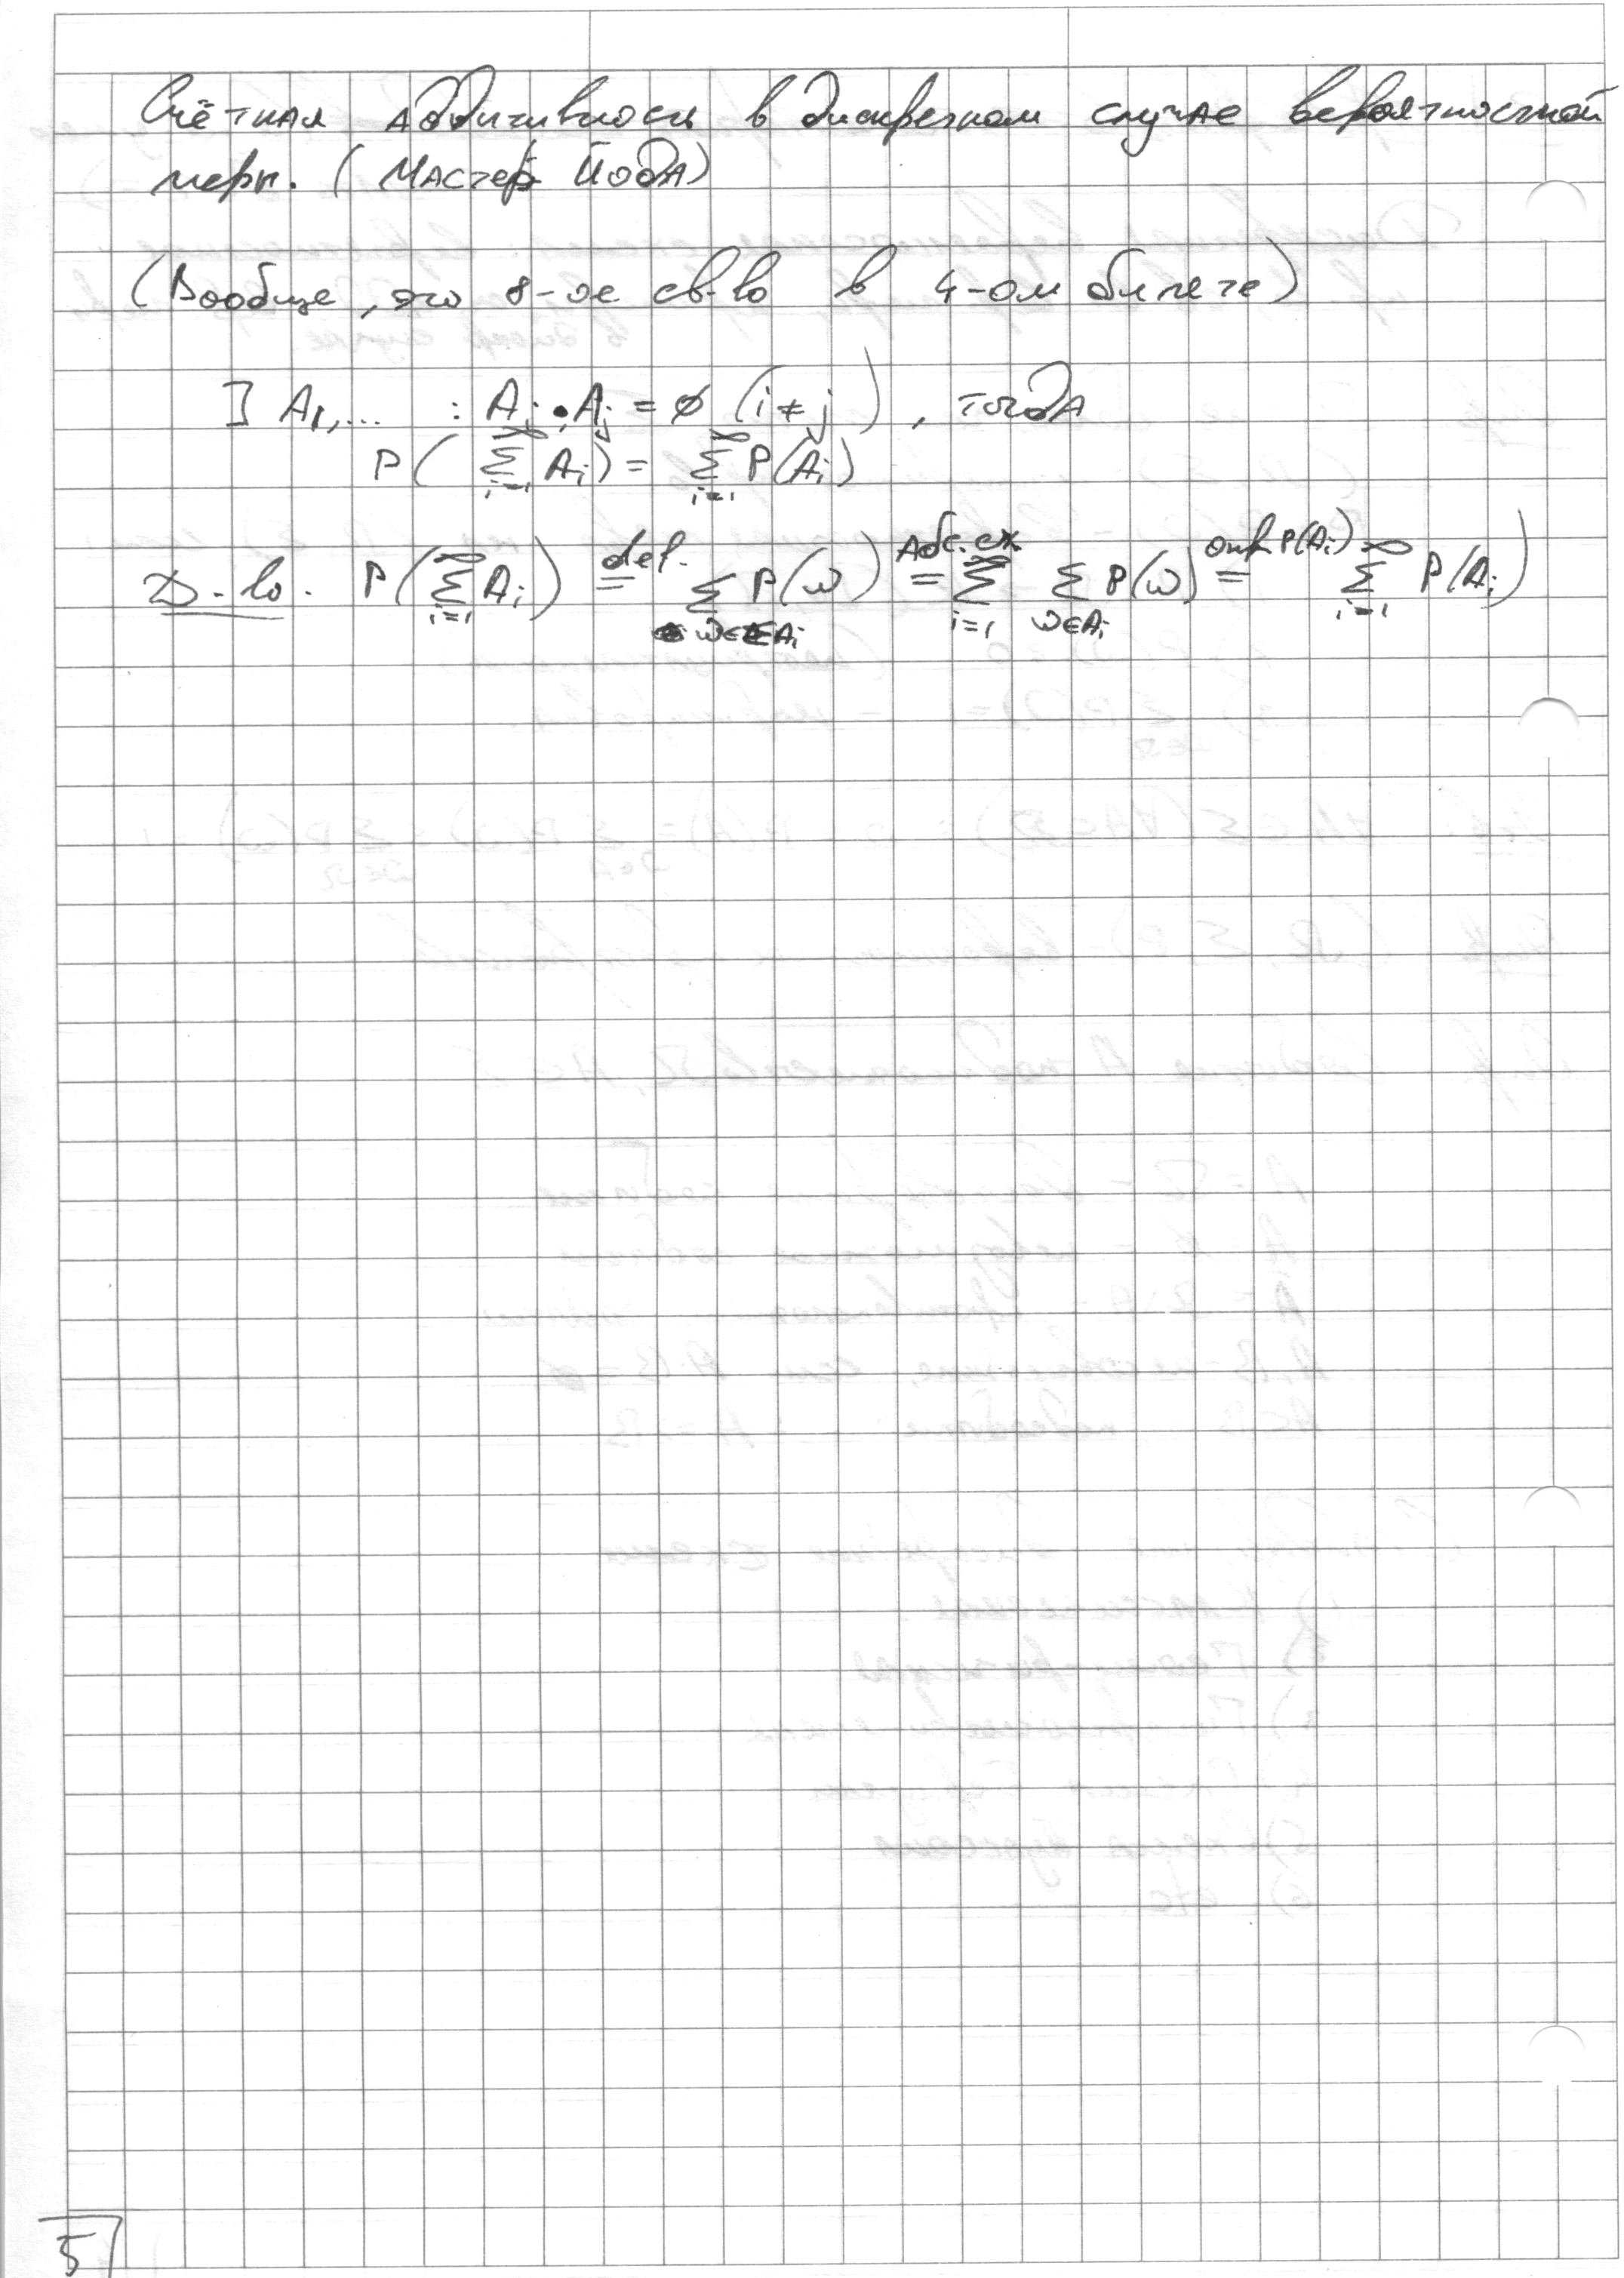 Счётная аддитивность в дискретном случае вероятностной
меры. (Мастер Йода)
(Вообще, это 8-ое св-во в 4-ом билете)
] A₁,... : Aᵢ • Aⱼ = ∅ (i ≠ j), тогда
P( ∑_{i=1}^{∞} Aᵢ) = ∑_{i=1}^{∞} P(Aᵢ)
Д-во. P(∑_{i=1}^{∞} Aᵢ) =^{def.} ∑_{ω∈∑Aᵢ} P(ω) =^{Абс. сх.} ∑_{i=1}^{∞} ∑_{ω∈Aᵢ} P(ω) =^{опр. P(Aᵢ)} ∑_{i=1}^{∞} P(Aᵢ)
5